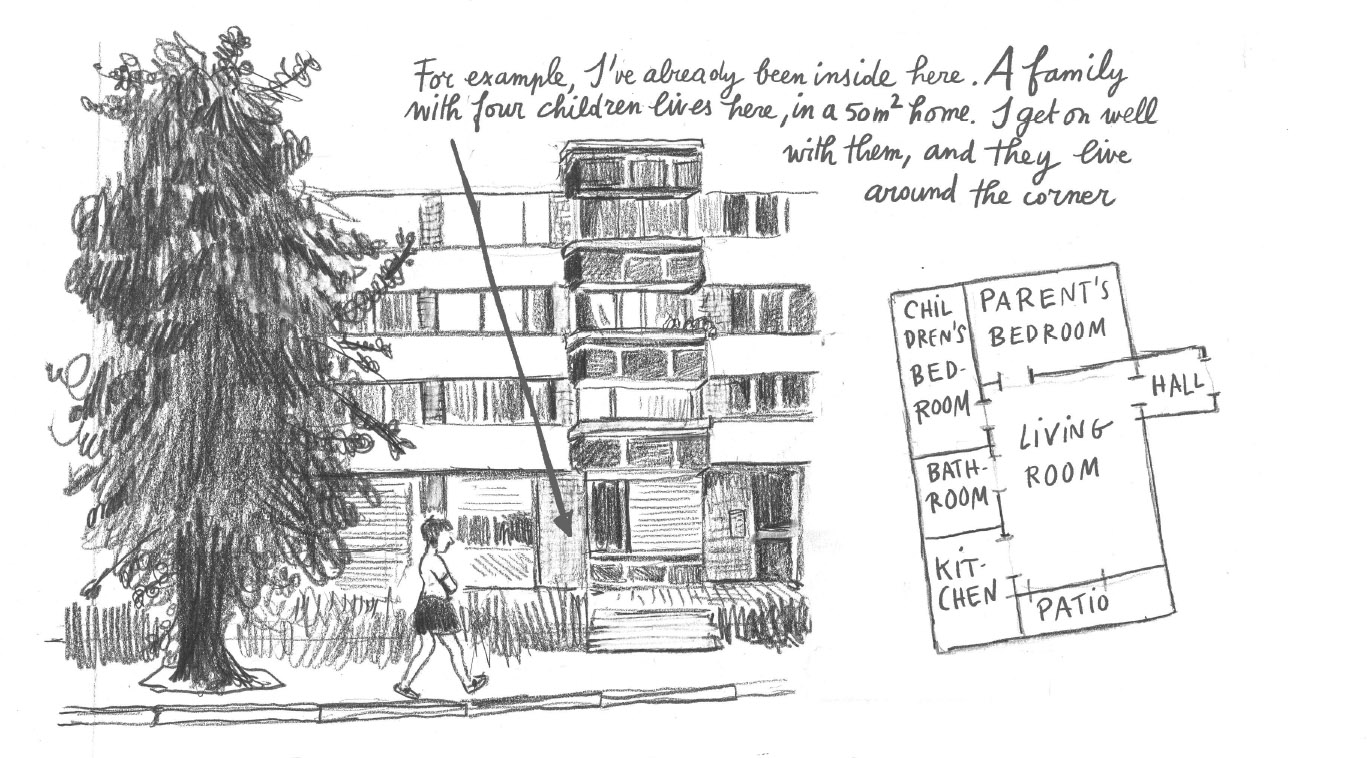 For example, I've already been inside here. A family
with four children lives here, in a 50m² home. I get on well
with them, and they live
around the corner
CHIL
DREN'S
BED-
ROOM
PARENT'S
BEDROOM
HALL
LIVING
ROOM
BATH-
ROOM
KIT-
CHEN
PATIO